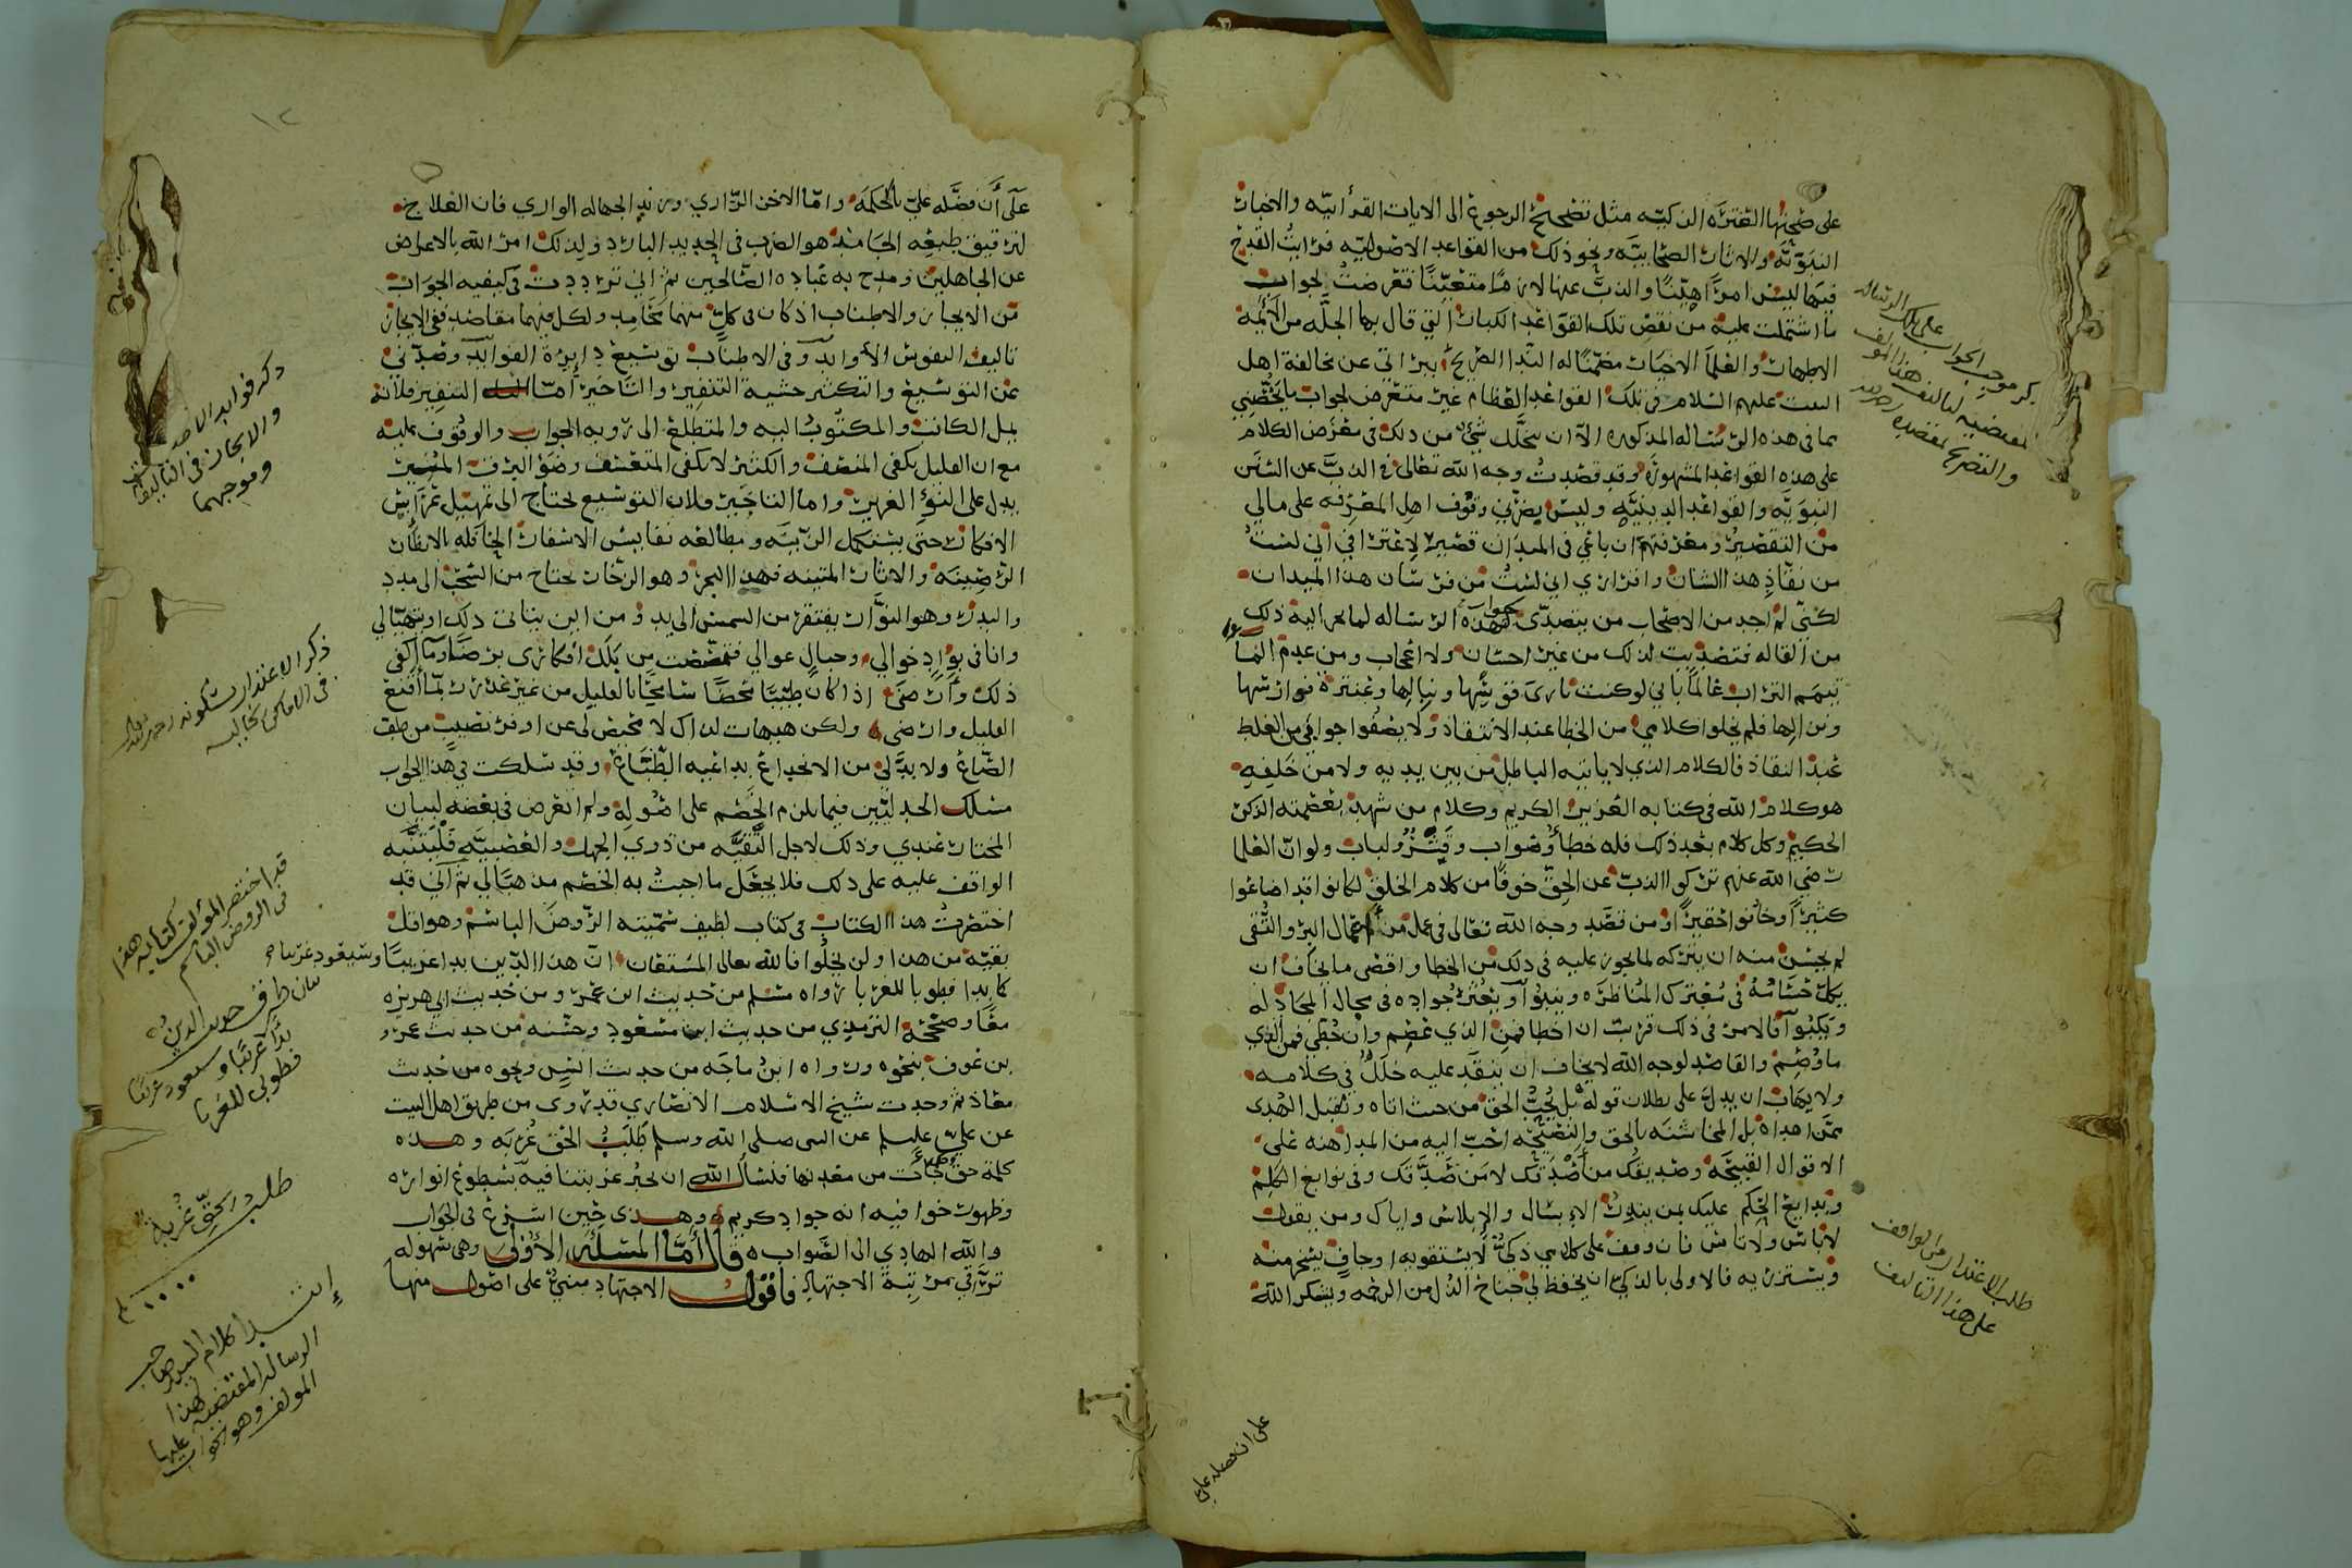 على طيّتها الفترة الزكيّه مثل تصحيح الرجوع الى الايات القرأنيّه والاخبار
النبويّه والاثار الصحابيّه ونحو ذلك من القواعد الاصوليّه فرايتُ القدح
فيها ليس امرًا هيّنًا والذبَّ عنها لازمًا متعيّنًا فتعرضتُ لجواب
ما اشتملت عليه من نقض تلك القواعد الكبار التي قال بها الجلّه من الأئمّه
الاطهار والعلمآ الاخيار مضمّنًا له الندا الصريح ببراتي عن مخالفة اهل
البيت عليهم السلام في تلك القواعد العظام غير متعرض لجواب ما يخصّني
مما في هذه الرساله المذكوره الآ ان يتخلّل شيء من ذلك في معرض الكلام
على هذه القواعد المشهورة وقد قصدتُ وجه الله تعالى في الذبَّ عن السنن
النبويّه والقواعد الدينيّه وليس يضرّني وقوف اهل المعرفه على مالي
من التقصير ومعرفتهم ان باعي في الميدان قصير لاعترافي أني لستُ
من نقّاذ هذا الشان واقراري اني لستُ من فرسان هذا الميدان
لكنّي لم اجد من الاصحاب من يتصدّى لجواب هذه الرساله لما يجر اليه ذلك
من القاله فتصديت لذلك من غير احسان ولا اعجاب ومن عدم الماء
تيمم التراب عالمًا باني لو كنت باري قوسها ونبالها وعنترة فوارسها
ونزالها فلم يخلوا كلامي من الخطا عند الانتقاد ولا يصفوا جوابي من الغلط
عند النقاد فالكلام الذي لا ياتيه الباطل من بين يديه ولا من خلفه
هو كلام الله في كتابه العزيز الكريم وكلام من شهد بعصمته الذكر
الحكيم وكل كلام بعد ذلك فله خطأ وصواب وقشر ولباب ولو ان العلما
رضي الله عنهم تركوا الذبّ عن الحقّ خوفًا من كلام الخلق لكانوا قد اضاعوا
كثيرًا وخافوا حقيرًا ومن قصد وجه الله تعالى في عمل من أعمال البر والتّقى
لم يحسن منه ان يتركه لما يجوز عليه في ذلك من الخطا واقصى ما يخاف ان
يكلّ حسامُه في معترك المناظره وينبوا ويعثر جواده في مجال المجادله
ويكبوا فالامر في ذلك قريب ان اخطا فمن الذي عصم وان خطّي فمن الذي
ما وُصِم والقاصد لوجه الله لا يخاف ان ينقد عليه خلل في كلامه
ولا يهاب ان يدل على بطلان قوله بل يحبّ الحق من حيث اتاه ويقبل الهدى
ممّن اهداه بل المخاشنه بالحق والنصيحه احبّ اليه من المداهنه على
الاقوال القبيحه وصديقك من أصدقك لا من صدّقك وفي نوابغ الكلم
وبدايع الحكم عليك بمن ينذر الابسال والابلاس واياك ومن يقول
لا باس ولا تاس فان وقف على كلامي ذكيّ لا يستقويه او جافٍ يسخر منه
ويستزريه فالاولى بالذكيّ ان يخفظ لي جناح الذل من الرحمه ويشكر الله
على ان فضله علي
على أن فضّله عليّ بالحكمه وامّا الاخر الزّاري وزند الجهاله الواري فان العلاج
لترقيق طبيعه الجامد هو الضرب في الحديد البارد ولذلك امر الله بالاعراض
عن الجاهلين ومدح به عباده الصّالحين ثم اني تردّدت في كيفيه الجواب
من الايجاز والاطناب اذ كان في كلّ منهما محامد ولكل منهما مقاصد ففي الايجاز
تاليف النفوس الأوابد وفي الاطناب توسيع دايرة الفوايد وصدّني
عن التوسيع والتكثير خشية التنفير والتّاخير امّا التنفير فلانه
يمل الكاتب والمكتوب اليه والمتطلع الى رويه الجواب والوقوف عليه
مع ان القليل يكفي المنصف والكثير لا يكفي المتعسّف وضوْ البرق المنير
يدل على النوْ الغزير واما التاخير فلان التوسيع يحتاج الى تمهيل عرايس
الافكار حتى يستكمل الزينه ومطالعه نفايس الاسفار الحافله بالانظار
الرصينه والاثار المتينه فهذا البحر وهو الزخّار يحتاج من السّحب الى مدد
والبدر وهو النوّار يفتقر من الشمس الى يد ومن اين يتاتى ذلك او يتهيّا لي
وانا في بوادٍ خوالي وجبالٍ عوالي فتمصّصت من بلل افكاري برضًا وما اكفى
ذلك وارضى اذا كان طيّبًا محضًا شايحيًّا بالقليل من غير غدير ربّما أقنع
القليل وارضى ولكن هيهات لذاك لا محيص لي عن اوفر نصيب من طف
الصّاع ولا بدّ لي من الانخداع بداعيه الطّباع وقد سلكت في هذا الجواب
مسلك الجدليّين فيما يلزم الخصم على اصوله ولم اتعرض في بعضه لبيان
المختار عندي وذلك لاجل التّقيّه من ذوي الجهل والعصبيّه فليتنبّه
الواقف عليه على ذلك فلا يجعل ما اجبتُ به الخصم مذهبًا لي ثم اني قد
اختصرتُ هذا الكتاب في كتاب لطيف سمّيته الرّوض الباسم وهو اقل
تقيّه من هذا ولن يخلوا فالله تعالى المستعان انّ هذا الدّين بدا غريبًا وسيعود غريبا
كما بدا فطوبا للغربا رواه مسلم من حديث ابن عمر ومن حديث ابي هريره
معًا وصحّحه الترمذي من حديث ابن مسعود وحسّنه من حديث عمرو
بن عوف بنحوه ورواه ابنُ ماجه من حديث انس ونحوه من حديث
معاذ ثم وجدت شيخ الاسلام الانصاري قد روى من طريق اهل البيت
عن عليّ عليلم عن النبى صلى الله وسلم طَلَبُ الحق غُربَه وهذه
كلمة حق جآت من معدنها فنسال الله ان يجبر غربتنا فيه بسطوع انواره
وظهور خوافيه انه جواد كريم وهذى حين اشرع في الجواب
والله الهادي الى الصّواب قال أمّا المسئله الأولى وهى سهوله
ترقّي مرتبة الاجتهاد فاقول الاجتهاد مبنيّ على اصول منها
على تلك الرساله
ذكر موجب الجواب
المقتضيه لتاليف هذا المولف
والتصريح بمقصده رحمه الله
طلب الاعتذار من الواقف
على هذا التاليف
١٢
ذكر فوايد الاطناب
والايجاز في التاليف
وموجبهما
ذكر الاعتذار بسكونه رحمه الله
في الاماكن الخاليه
قد اختصر المؤلف كتابه هذا
في الروض الباسم
بيان طرق حديث الدين
بدا غريبًا وسيعود غريبًا
فطوبى للغربا
طلب الحق غربة
ابتدا كلام السيد صاحب
الرساله المقتضيه لهذا
المولف وهو جواب عليها